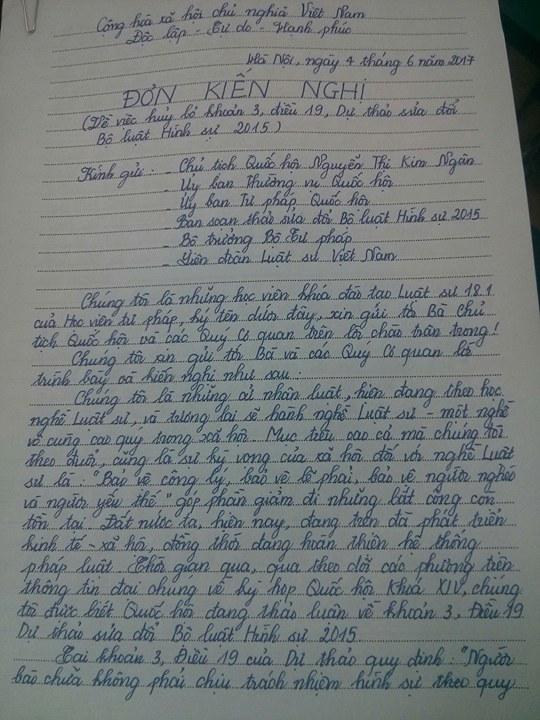 Cộng hòa xã hội chủ nghĩa Việt Nam
Độc lập - Tự do - Hạnh phúc
Hà Nội, ngày 4 tháng 6 năm 2017
ĐƠN KIẾN NGHỊ
(Về việc huỷ bỏ khoản 3, điều 19, Dự thảo sửa đổi
Bộ luật Hình sự 2015)
Kính gửi: - Chủ tịch Quốc hội Nguyễn Thị Kim Ngân
- Ủy ban Thường vụ Quốc hội
- Ủy ban Tư pháp Quốc hội
- Ban soạn thảo sửa đổi Bộ luật Hình sự 2015
- Bộ trưởng Bộ Tư pháp
- Liên đoàn Luật sư Việt Nam
Chúng tôi là những học viên khóa đào tạo Luật sư 18.1
của Học viện tư pháp, ký tên dưới đây, xin gửi tới Bà Chủ
tịch Quốc hội và các Quý Cơ quan trên lời chào trân trọng!
Chúng tôi xin gửi tới Bà và các Quý Cơ quan lời
trình bày và kiến nghị như sau:
Chúng tôi là những cử nhân luật, hiện đang theo học
nghề Luật sư, và tương lai sẽ hành nghề Luật sư - một nghề
vô cùng cao quý trong xã hội. Mục tiêu cao cả mà chúng tôi
theo đuổi, cũng là sự kỳ vọng của xã hội đối với nghề Luật
sư là: "Bảo vệ công lý, bảo vệ lẽ phải, bảo vệ người nghèo
và người yếu thế", góp phần giảm đi những bất công còn
tồn tại. Đất nước ta, hiện nay, đang trên đà phát triển
kinh tế - xã hội, đồng thời đang hoàn thiện hệ thống
pháp luật. Thời gian qua, qua theo dõi các phương tiện
thông tin đại chúng về kỳ họp Quốc hội Khoá XIV, chúng
tôi được biết Quốc hội đang thảo luận về khoản 3, Điều 19
Dự thảo sửa đổi Bộ luật Hình sự 2015.
Tại khoản 3, Điều 19 của Dự thảo quy định: "Người
bào chữa không phải chịu trách nhiệm hình sự theo quy